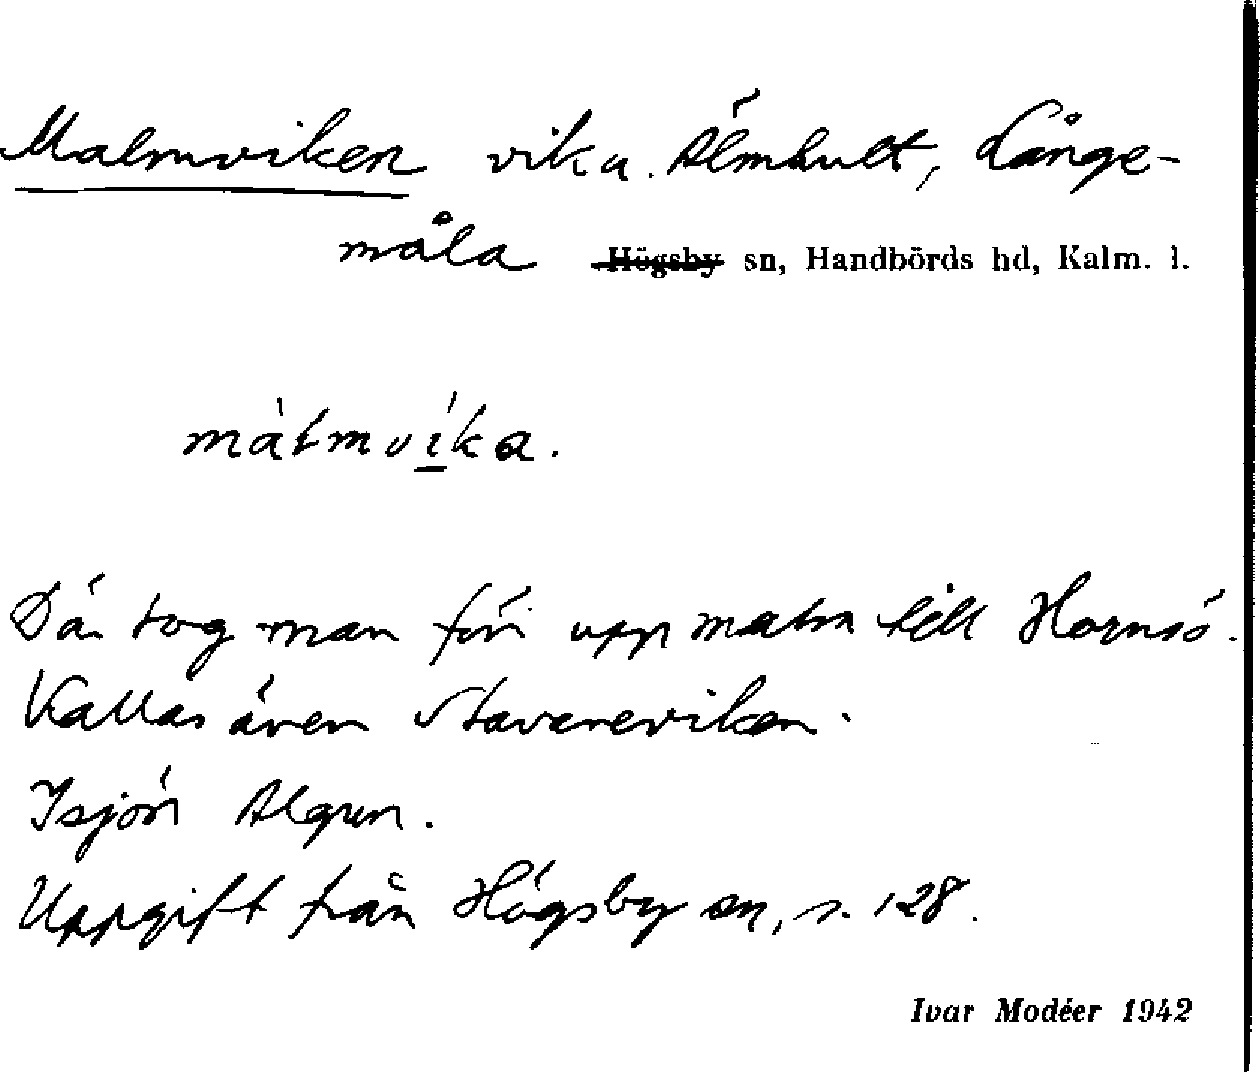 Malmviken vik u. Älmhult, Långe-
måla Högsby sn, Handbörds hd, Kalm. l.
màlmvíka.
Där tog man förr upp malm till Hornsö.
Kallas även Stavareviken.
Isjön Algun.
Uppgift från Högsby sn, s. 128.
Ivar Modéer 1942